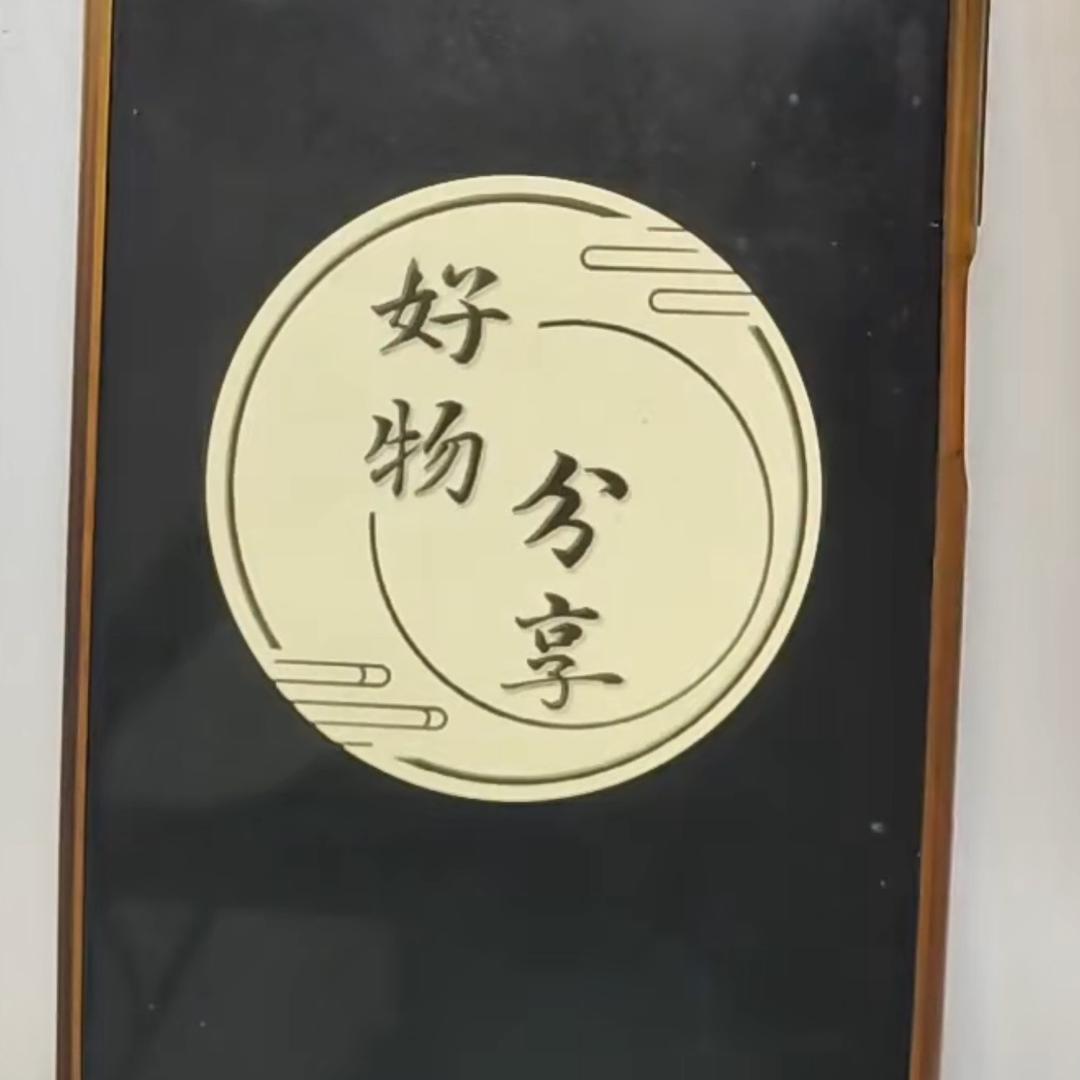 好物
分享